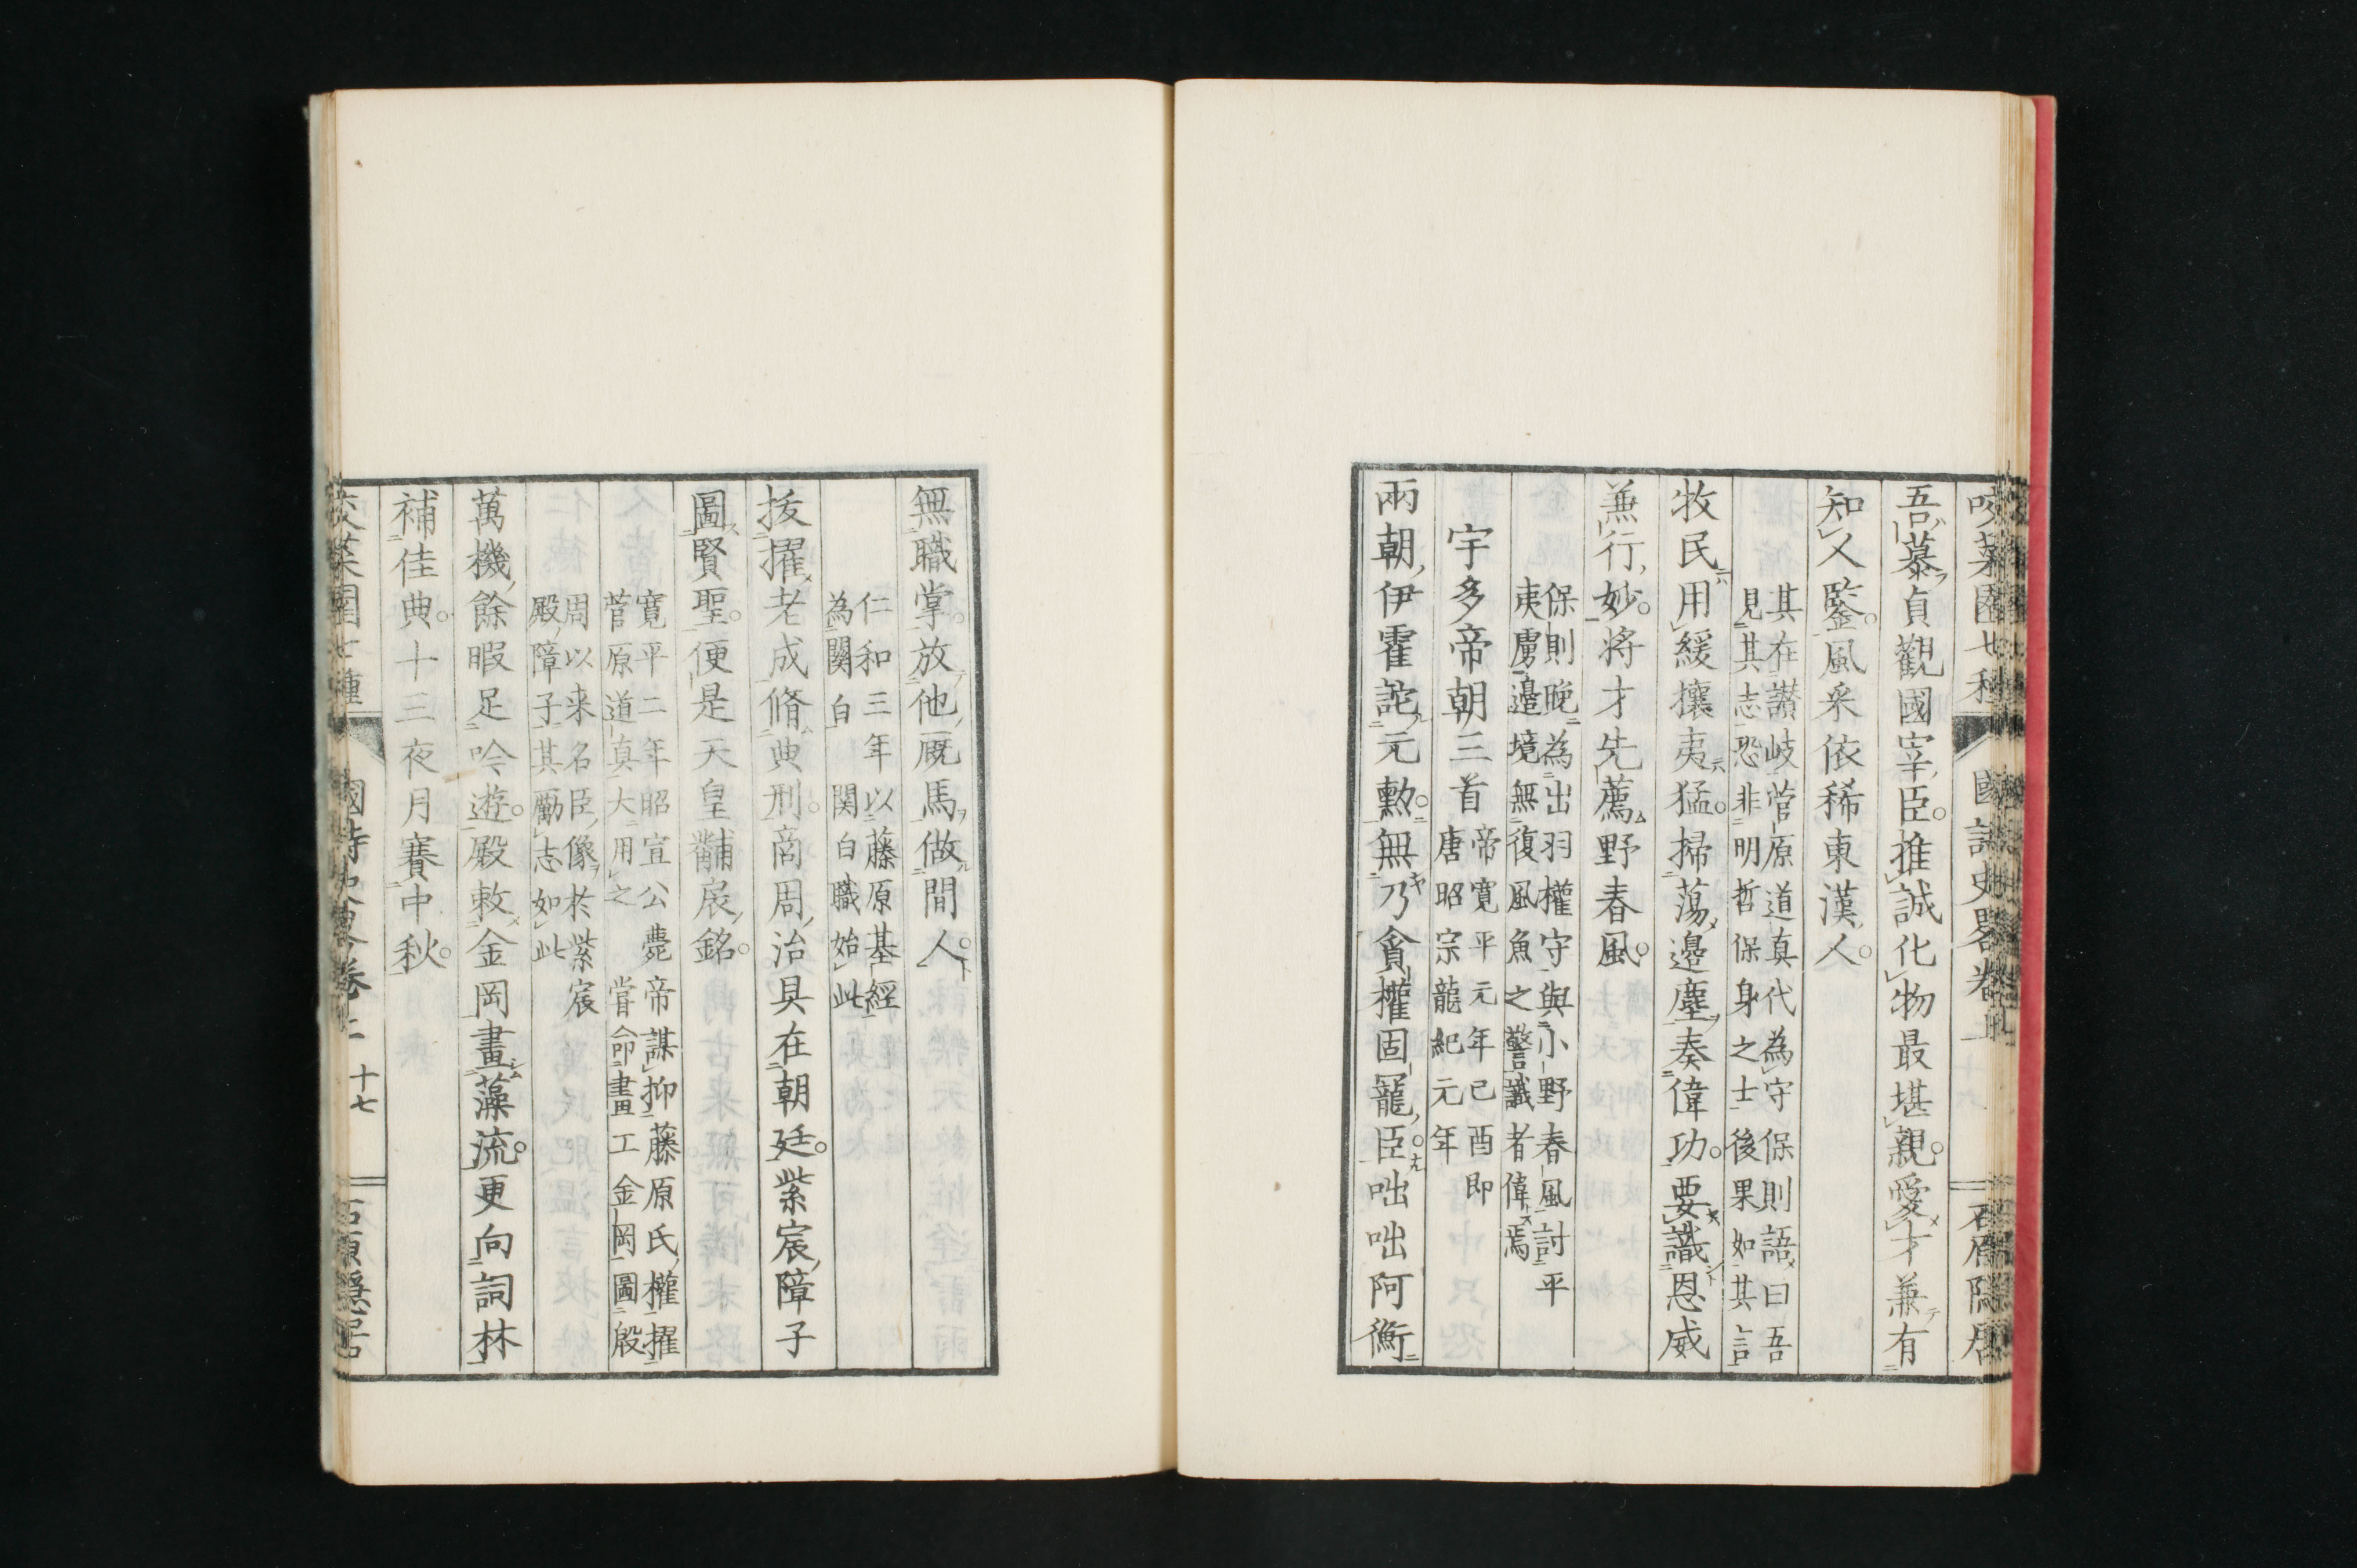 吾慕貞觀國宰臣推誠化物最堪親愛才兼有
知人鑒風采依稀東漢人
其在讃岐菅原道真代為守保則語曰吾
見其志恐非明哲保身之士後果如其言
牧民用緩攘夷猛掃蕩邊塵奏偉功要識恩威
兼行妙將才先薦野春風
保則晚為出羽權守與小野春風討平
夷虜邊境無復風魚之警識者偉焉
宇多帝朝三首
帝寛平元年己酉即
唐昭宗龍紀元年
兩朝伊霍詫元勲無乃貪權固寵臣咄咄阿衡
無職掌放他厩馬做間人
仁和三年以藤原基經
為関白関白職始此
拔擢老成脩典刑商周治具在朝廷紫宸障子
圖賢聖便是天皇黼扆銘
寛平二年昭宣公薨帝謀抑藤原氏權擢
菅原道真大用之嘗命畫工金岡圖殷
周以来名臣像於紫宸
殿障子其勵志如此
萬機餘暇足吟遊殿敕金岡畫藻流更向詞林
補佳典十三夜月賽中秋
國詩史畧卷二
十七